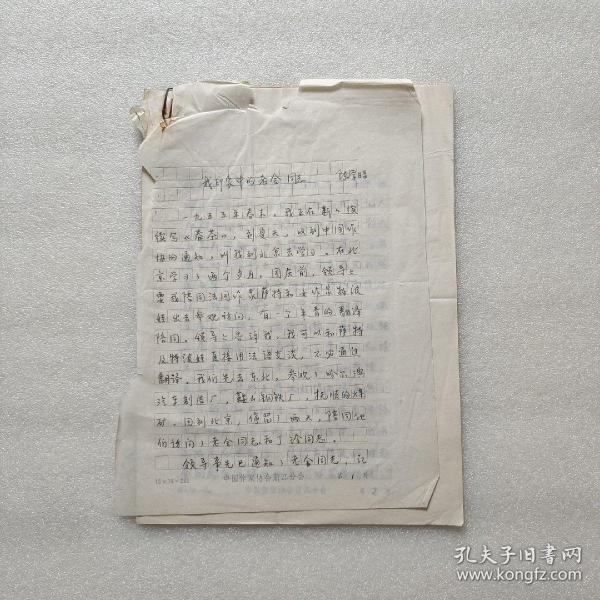 我印象中的老舍同志 陈学昭
一九五五年春末，我正在新
续写《春茶》，到夏天，收到中国作
协的通知，叫我到北京去学习。在北
京学习了两个多月，国庆前，领导上
要我陪同法国作家萨特和女作家特波
娃出去参观访问，有一个年青的翻译
陪同。领导上告诉我，我可以和萨特
及特波娃直接用法语交谈，不必通过
翻译。我们先去东北，参观了哈尔滨
汽车制造厂，鞍山钢铁厂，抚顺的煤
矿。回到北京，停留了两天，陪同他
们访问了老舍同志和丁玲同志。
领导事先已通知了老舍同志，让
中国作家协会浙江分会
孔夫子旧书网
www.kongfz.com